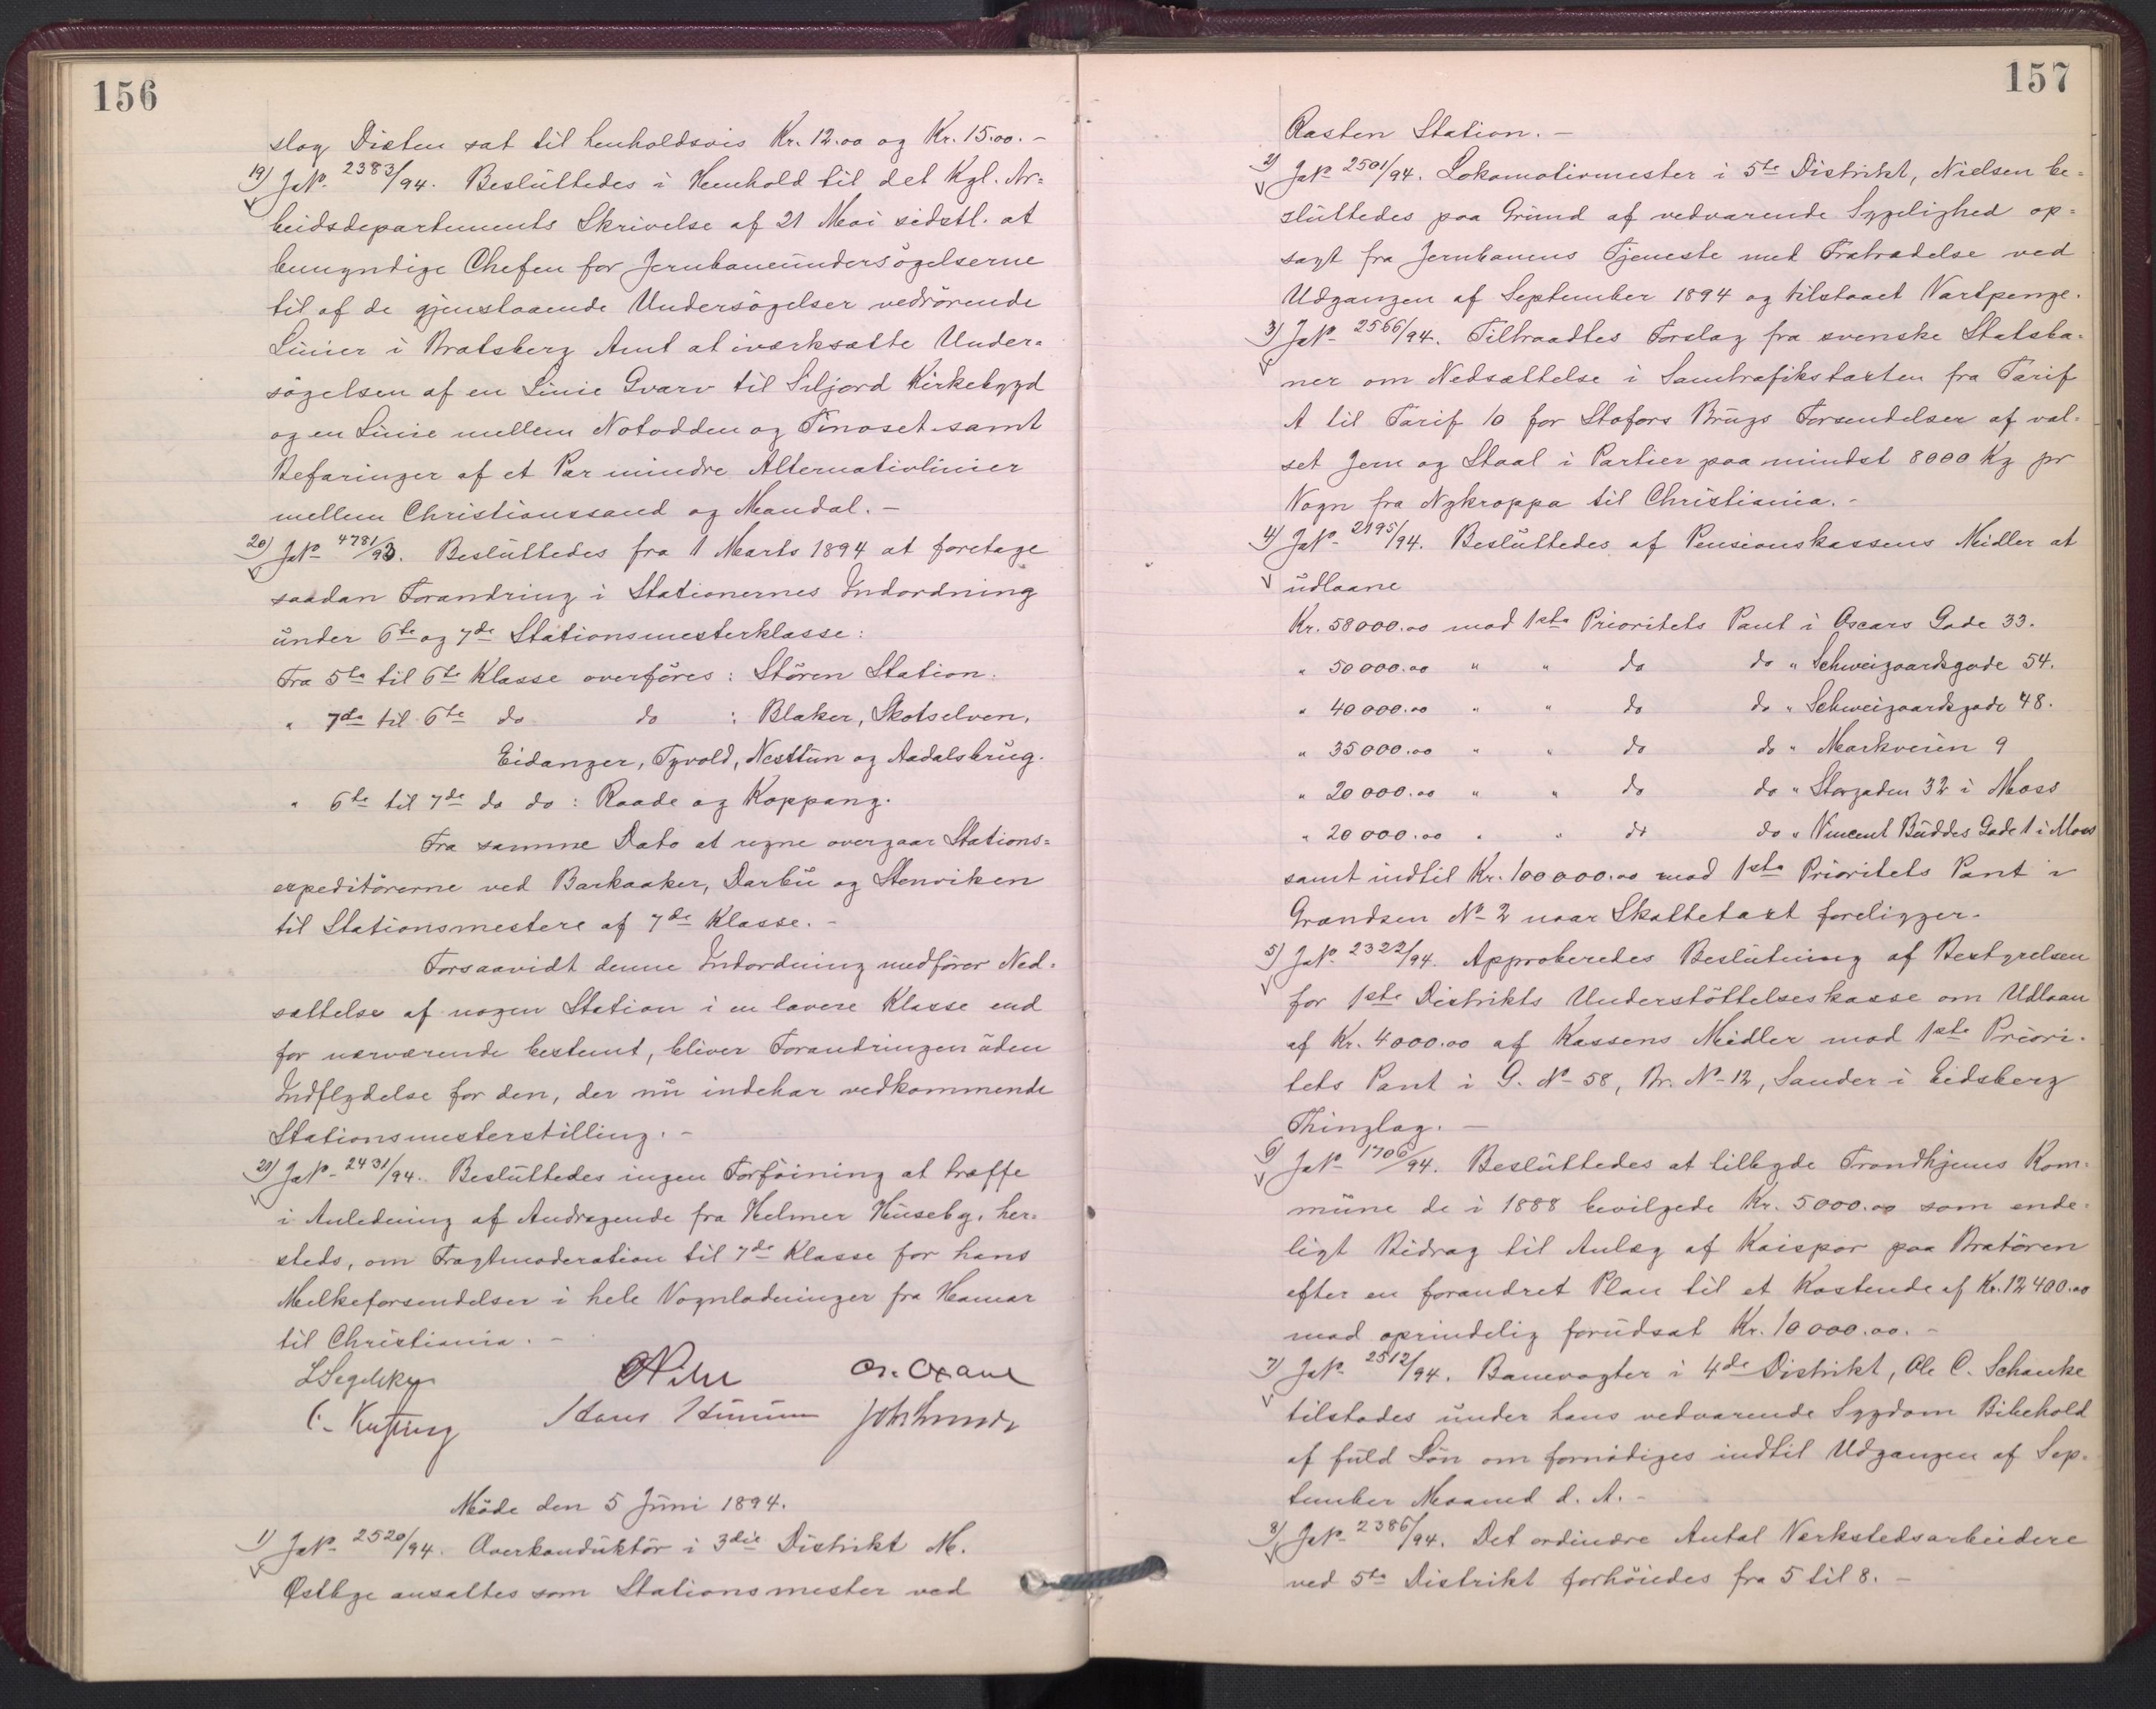 156
slag Diæten sat til henholdsvis Kr. 12.00 og Kr. 15.00. -
19) JNo 2383/94. Besluttedes i Henhold til det Kgl. Ar=
beidsdepartements Skrivelse af 21 Mai sidstl. at
bemyndige Chefen for Jernbaneundersögelserne
til af de gjenstaaende Undersögelser vedrörende
Linier i Bratsberg Amt at iværksætte Under=
sögelsen af en Linie Gvarv til Siljord Kirkebygd
og en Linie mellem Notodden og Tinoset samt
Befaringer af et Par mindre Alternativlinier
mellem Christianssand og Mandal. -
20) JNo 4781/93. Besluttedes fra 1 Marts 1894 at foretage
saadan Forandring i Stationernes Indordning
under 6te og 7de Stationsmesterklasse:
Fra 5te til 6te Klasse overföres: Stören Station.
" 7de til 6te do do : Blaker, Skotselven,
Eidanger, Tyvold, Nesttun og Aadalsbrug.
" 6te til 7de do do: Raade og Koppang.
Fra samme Dato at regne overgaar Stations=
expeditörerne ved Barkaaker, Darbu og Stenviken
til Stationsmestere af 7de Klasse. -
Forsaavidt denne Indordning medförer Ned=
sættelse af nogen Station i en lavere Klasse end
for nærværende bestemt, bliver Forandringen uden
Indflydelse for den, der nu indehar vedkommende
Stationsmesterstilling. -
21) JaNo 2431/94. Besluttedes ingen Forföining at træffe
i Anledning af Andragende fra Helmer Huseby, her=
steds, om Fragtmoderation til 7de Klasse for hans
Melkeforsendelser i hele Vognladninger fra Hamar
til Christiania. -
Möde den 5 Juni 1894.
1) JaNo 2520/94. Overkonduktör i 3die Distrikt M.
Østbye ansattes som Stationsmester ved
157
Rasten Station. -
2) JaNo 2501/94. Lokomotivmester i 5te Distrikt, Nielsen be=
sluttedes paa Grund af vedvarende Sygelighed op=
sagt fra Jernbanens Tjeneste med Fratrædelse ved
Udgangen af September 1894 og tilstaaet Vartpenge.
3) JaNo 2566/94. Tiltraadtes Forslag fra svenske Statsba=
ner om Nedsættelse i Samtrafikstaxten fra Tarif
A til Tarif 10 for Stofors Brugs Forsendelser af val=
set Jern og Staal i Partier paa mindst 8000 Kg pr
Vogn fra Nykroppa til Christiania. -
4) JaNo 2195/94. Besluttedes af Pensionskassens Midler at
udlaane
Kr. 58000.00 mod 1ste Prioritets Pant i Oscars Gade 33.
" 50000.00 " " do do " Schweigaardsgade 54.
" 40000.00 " " do do " Schweigaardsgade 48.
" 35000.00 " " do do " Markveien 9
" 20000.00 " " do do " Storgaden 32 i Moss
" 20000.00 " " do do " Vincent Buddes Gade 1 i Moss
samt indtil Kr. 100000.00 mod 1ste Prioritets Pant i
Grændsen No 2 naar Skattetaxt foreligger.
5) JaNo 2322/94. Approberedes Beslutning af Bestyrelsen
for 1ste Distrikts Understöttelseskasse om Udlaan
af Kr. 4000.00 af Kassens Midler mod 1ste Priori=
tets Pant i G. No 58, Br. No 12, Sander i Eidsberg
Thinglag. -
6) JaNo 1706/94. Besluttedes at tilbyde Trondhjems Kom=
mune de i 1888 bevilgede Kr. 5000.00 som ende=
ligt Bidrag til Anlæg af Kaispor paa Bratören
efter en forandret Plan til et Kostende af Kr. 12400.00
mod oprindelig forudsat Kr. 10000.00. -
7) JaNo 2512/94. Banevogter i 4de Distrikt, Ole C. Schanke
tilstodes under hans vedvarende Sygdom Bibehold
af fuld Lön om fornödiges indtil Udgangen af Sep=
tember Maaned d. A. -
8) JaNo 2386/94. Det ordinære Antal Værkstedsarbeidere
ved 5te Distrikt forhöiedes fra 5 til 8. -